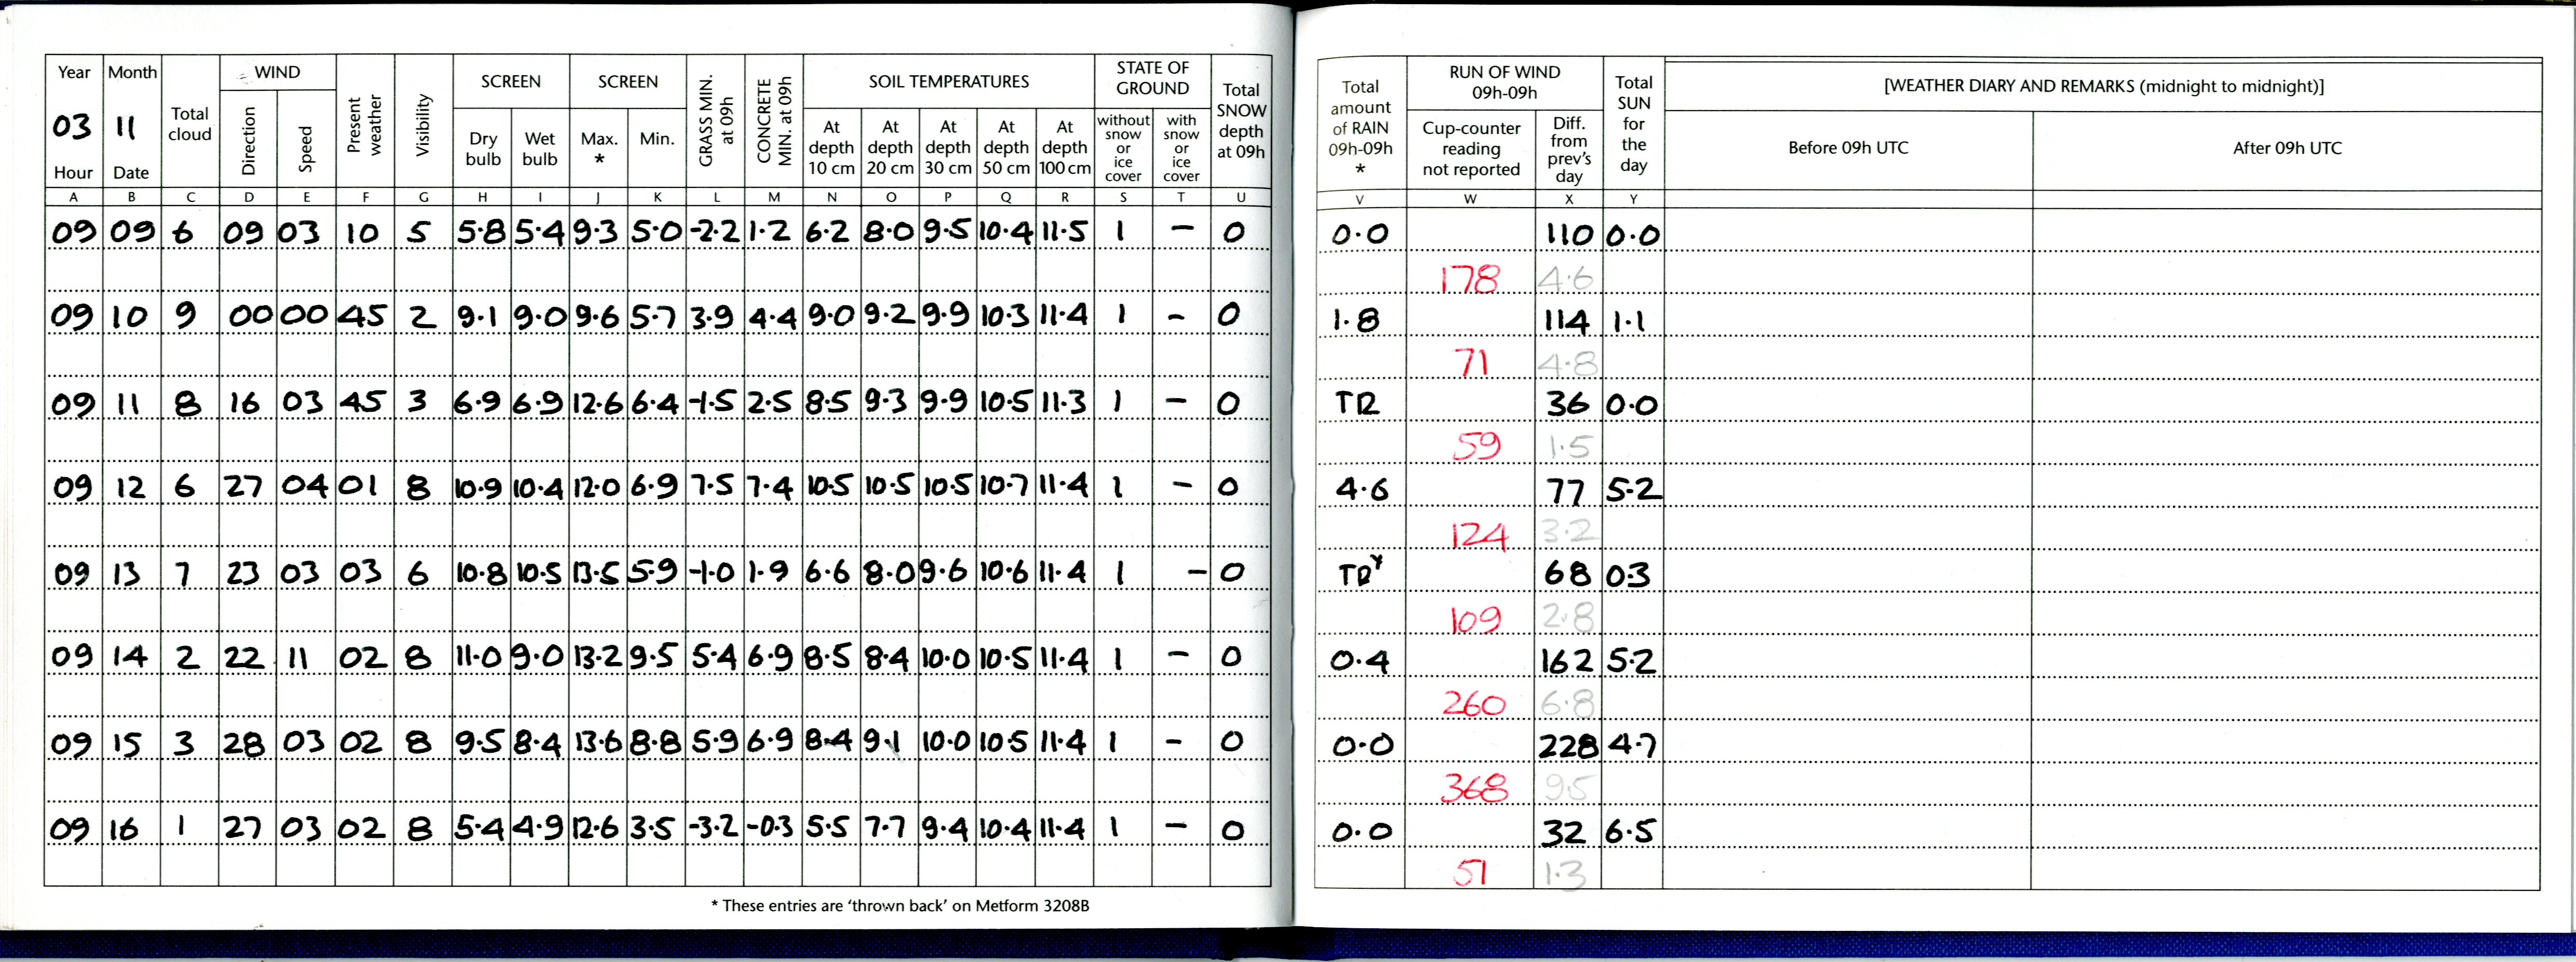 Year Month Total cloud WIND Present weather Visibility SCREEN SCREEN GRASS MIN. at 09h CONCRETE MIN. at 09h SOIL TEMPERATURES STATE OF GROUND Total SNOW depth at 09h Total amount of RAIN 09h-09h * RUN OF WIND 09h-09h Total SUN for the day [WEATHER DIARY AND REMARKS (midnight to midnight)]
03 11 Direction Speed Dry bulb Wet bulb Max. * Min. At depth 10 cm At depth 20 cm At depth 30 cm At depth 50 cm At depth 100 cm without snow or ice cover with snow or ice cover Cup-counter reading not reported Diff. from prev's day Before 09h UTC After 09h UTC
Hour Date
A B C D E F G H I J K L M N O P Q R S T U V W X Y
09 09 6 09 03 10 5 5.8 5.4 9.3 5.0 -2.2 1.2 6.2 8.0 9.5 10.4 11.5 1 - 0 0.0 110 0.0
178 4.6
09 10 9 00 00 45 2 9.1 9.0 9.6 5.7 3.9 4.4 9.0 9.2 9.9 10.3 11.4 1 - 0 1.8 114 1.1
71 4.8
09 11 8 16 03 45 3 6.9 6.9 12.6 6.4 -1.5 2.5 8.5 9.3 9.9 10.5 11.3 1 - 0 TR 36 0.0
59 1.5
09 12 6 27 04 01 8 10.9 10.4 12.0 6.9 7.5 7.4 10.5 10.5 10.5 10.7 11.4 1 - 0 4.6 77 5.2
124 3.2
09 13 7 23 03 03 6 10.8 10.5 13.5 5.9 -1.0 1.9 6.6 8.0 9.6 10.6 11.4 1 - 0 TR 68 0.3
109 2.8
09 14 2 22 11 02 8 11.0 9.0 13.2 9.5 5.4 6.9 8.5 8.4 10.0 10.5 11.4 1 - 0 0.4 162 5.2
260 6.8
09 15 3 28 03 02 8 9.5 8.4 13.6 8.8 5.9 6.9 8.4 9.1 10.0 10.5 11.4 1 - 0 0.0 228 4.7
368 9.5
09 16 1 27 03 02 8 5.4 4.9 12.6 3.5 -3.2 -0.3 5.5 7.7 9.4 10.4 11.4 1 - 0 0.0 32 6.5
51 1.3
* These entries are 'thrown back' on Metform 3208B